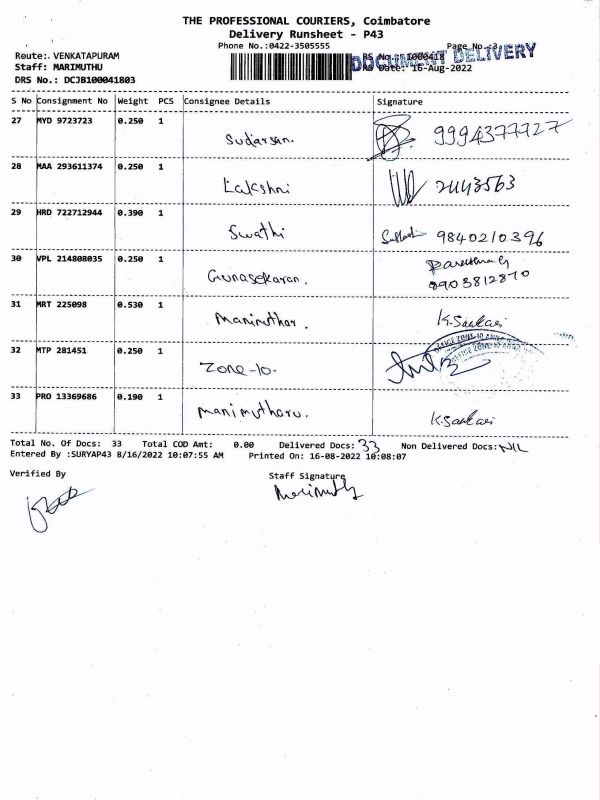 THE PROFESSIONAL COURIERS, Coimbatore
Delivery Runsheet - P43
Phone No.:0422-3505555 Page No.:3
Route: VENKATAPURAM RS No.: I000418
DOCUMENT DELIVERY
Staff: MARIMUTHU Date: 16-Aug-2022
DRS No.: DCJB100041803
S No Consignment No Weight PCS Consignee Details Signature
27 MYD 9723723 0.250 1
Sudarsan. 9994377727
28 MAA 293611374 0.250 1
Lakshni 2443563
29 HRD 722712944 0.390 1
Swathi 9840210396
30 VPL 214808035 0.250 1
Gunasekaran. 8903812870
31 MRT 225098 0.530 1
Manimuthar. K.Sankari
32 MTP 281451 0.250 1
Zone-10.
33 PRO 13369686 0.190 1
Manimutharu. K.Sankari
Total No. Of Docs: 33 Total COD Amt: 0.00 Delivered Docs: 33 Non Delivered Docs: NIL
Entered By :SURYAP43 8/16/2022 10:07:55 AM Printed On: 16-08-2022 10:08:07
Verified By Staff Signature
Marimuthu